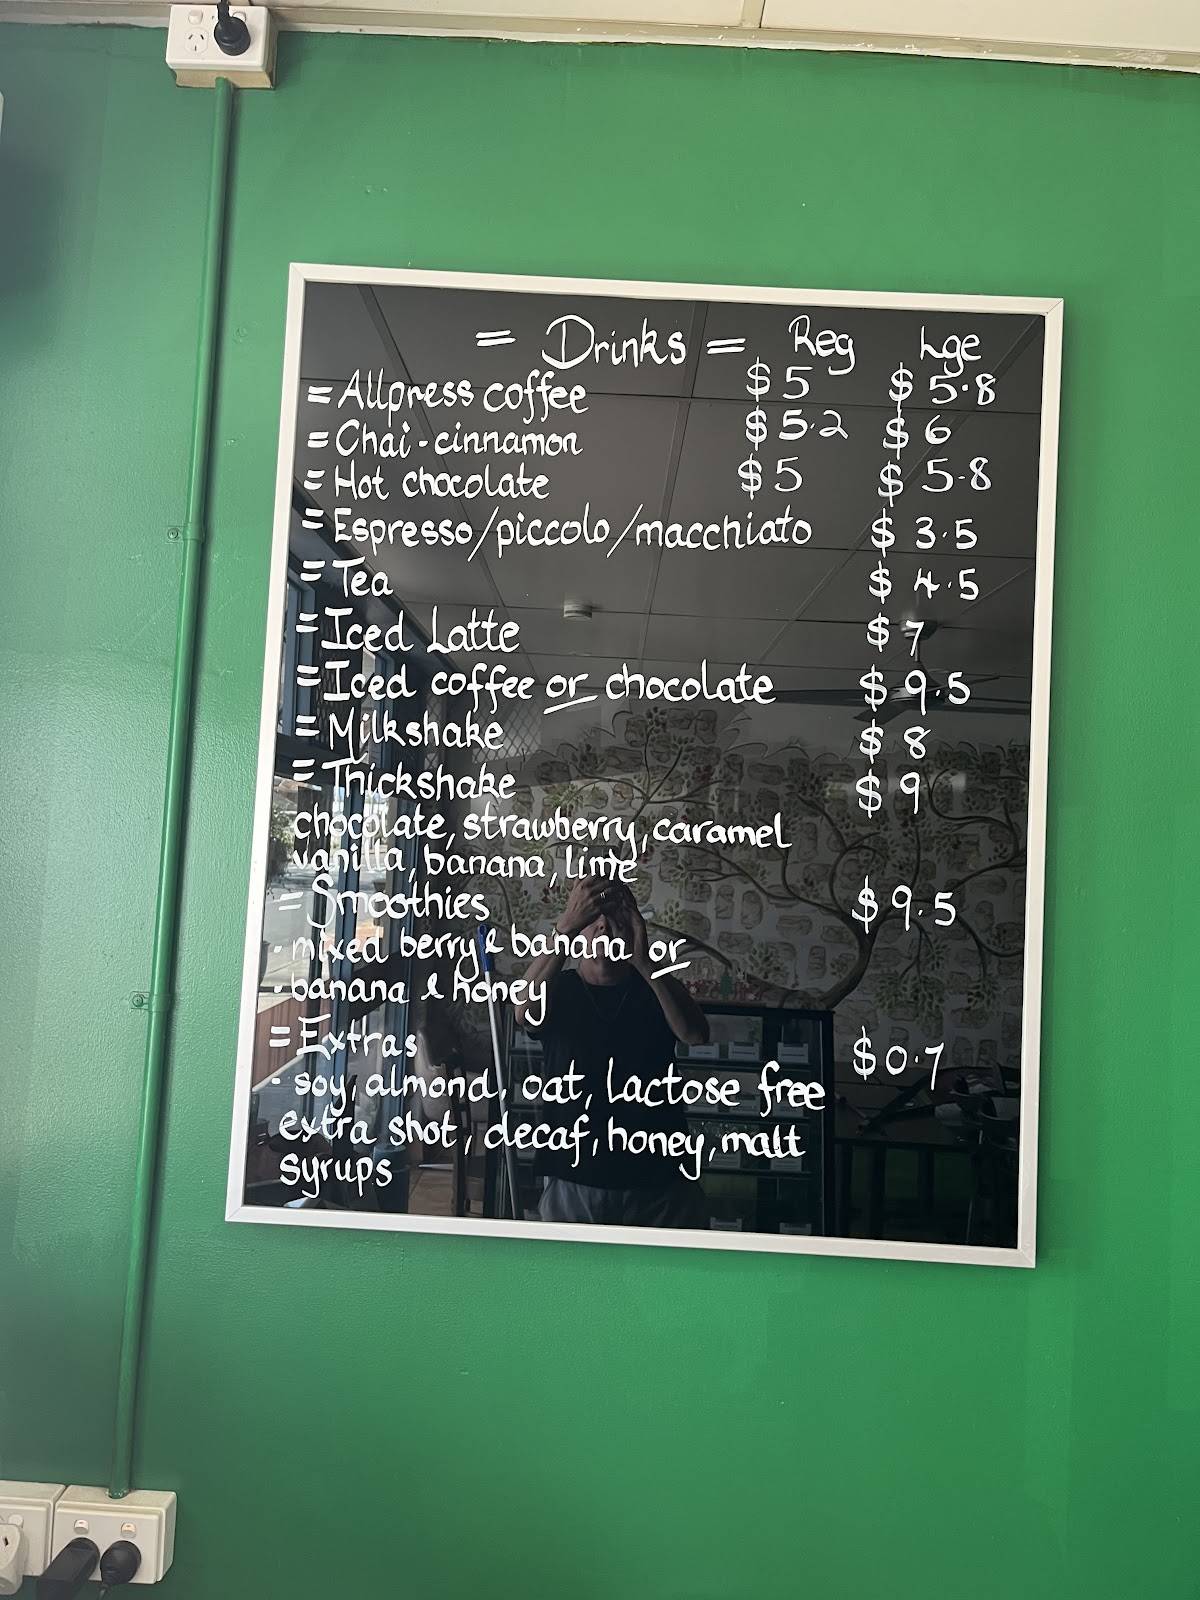 = Drinks = Reg Lge
= Allpress coffee $5 $5.8
= Chai-cinnamon $5.2 $6
= Hot chocolate $5 $5.8
= Espresso/piccolo/macchiato $3.5
= Tea $4.5
= Iced Latte $7
= Iced coffee or chocolate $9.5
= Milkshake $8
= Thickshake $9
chocolate, strawberry, caramel
vanilla, banana, lime
= Smoothies $9.5
- mixed berry & banana or
- banana & honey
= Extras $0.7
- soy, almond, oat, Lactose free
extra shot, decaf, honey, malt
syrups